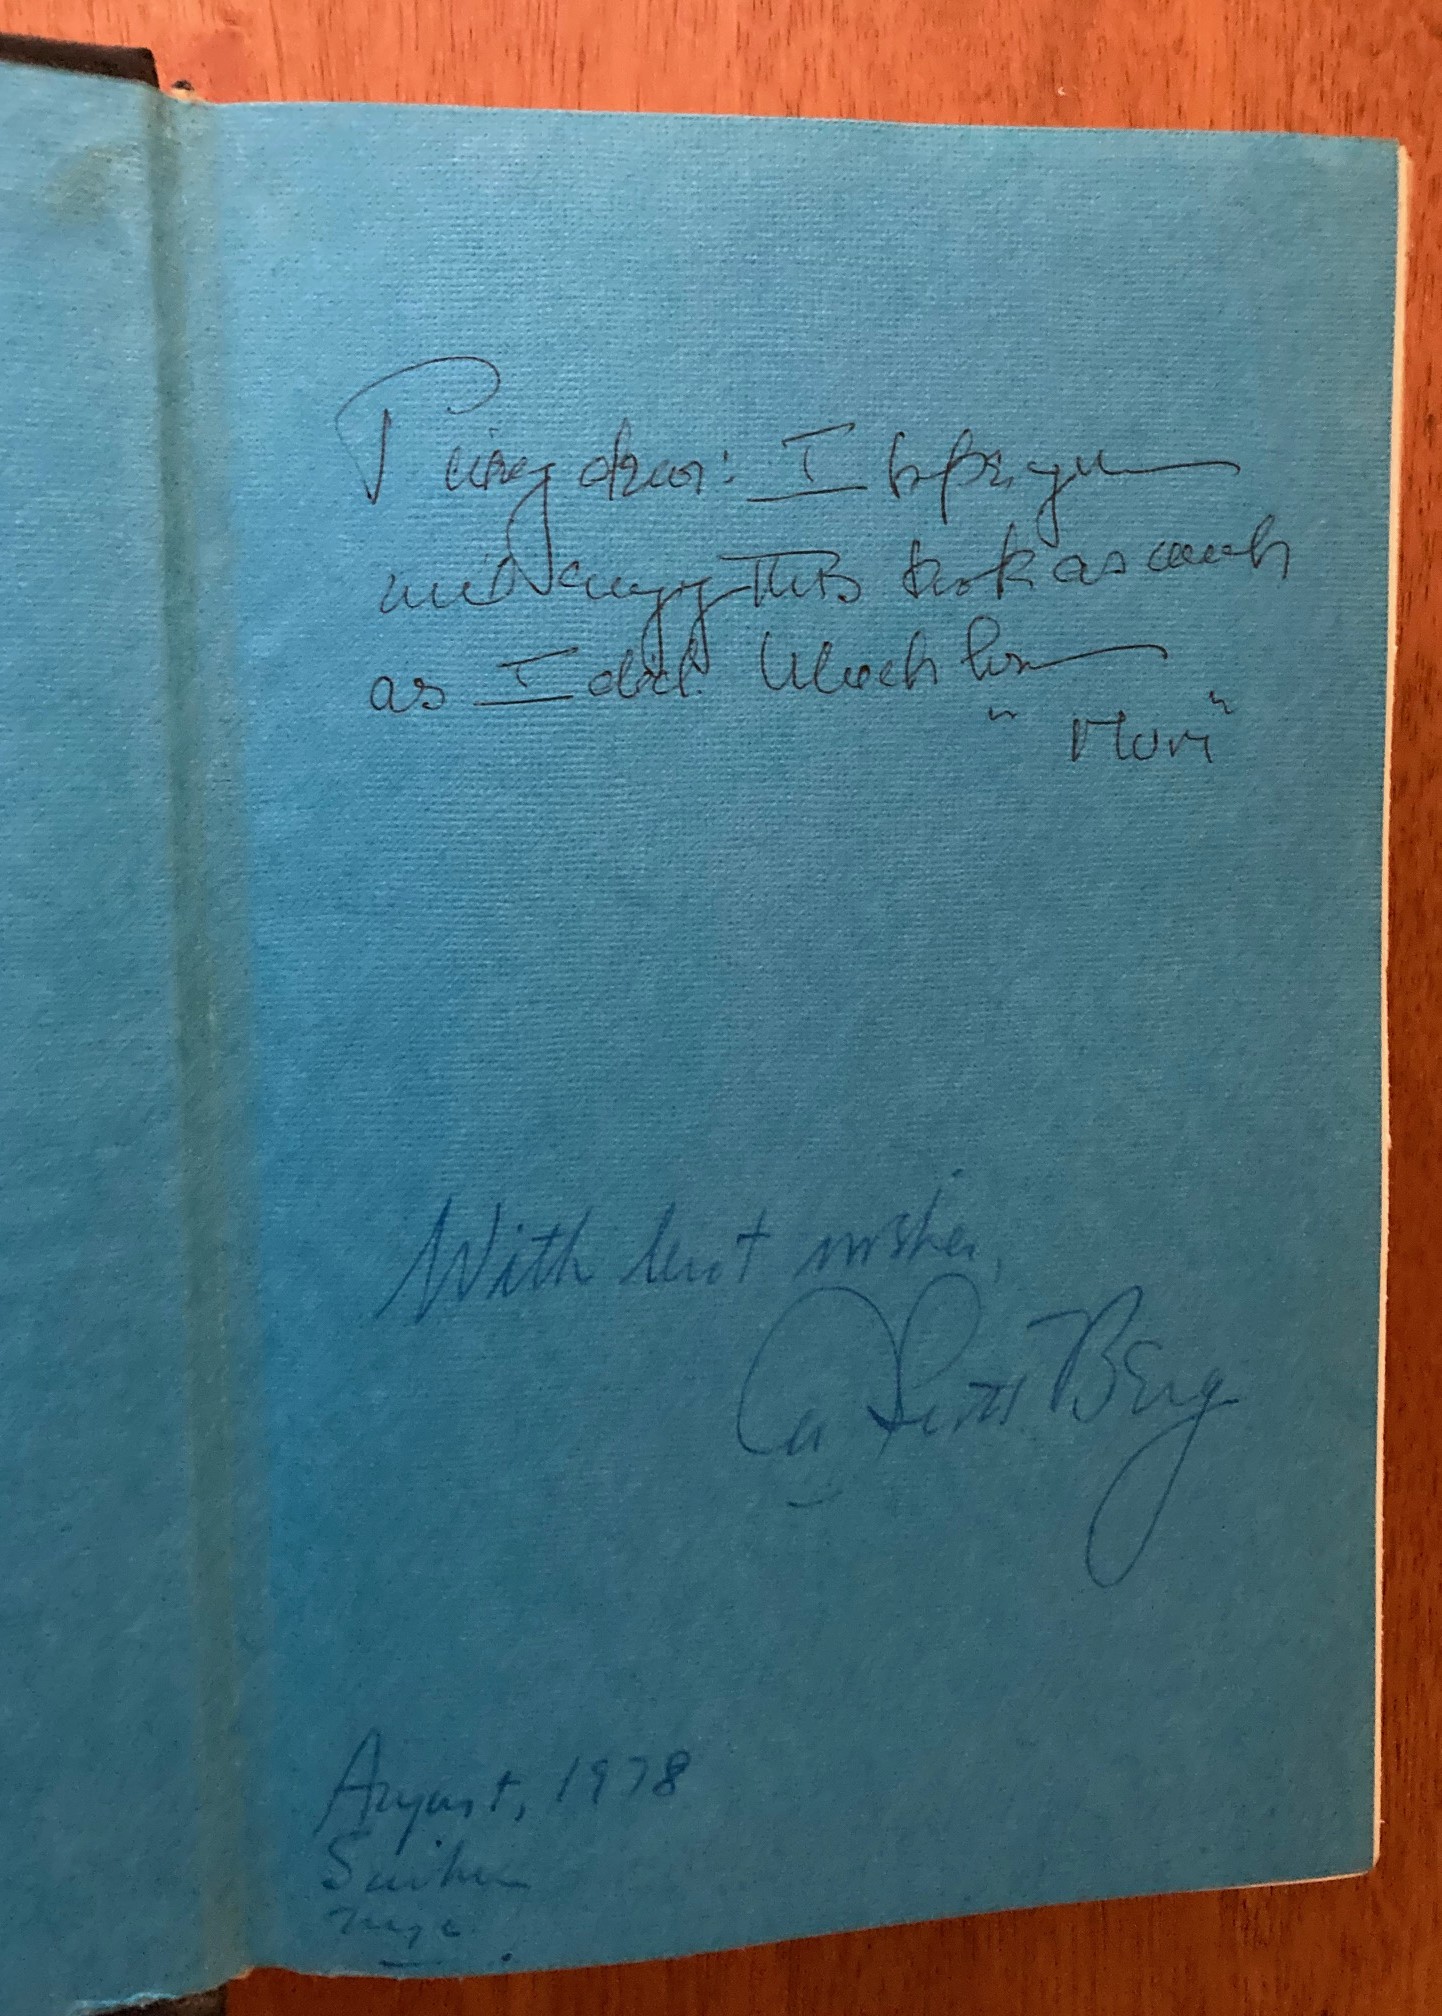 dear: I hope you
will enjoy this book as much
as I did. Much love
"Mori"
With best wishes,
A. Scott Berg
August, 1978